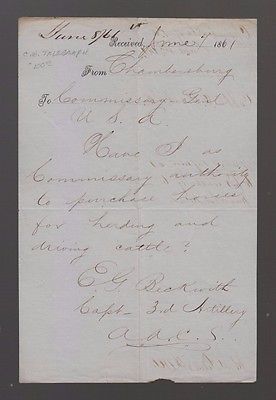 June 8/61
C.W. TELEGRAPH
Received, June 7 1861
From Chambersburg
To Commissary Genl
U. S. A.
Have I as
Commissary authority
to purchase horses
for herding and
driving cattle?
E. G. Beckwith
Capt 3rd Artillery
A. A. C. S.